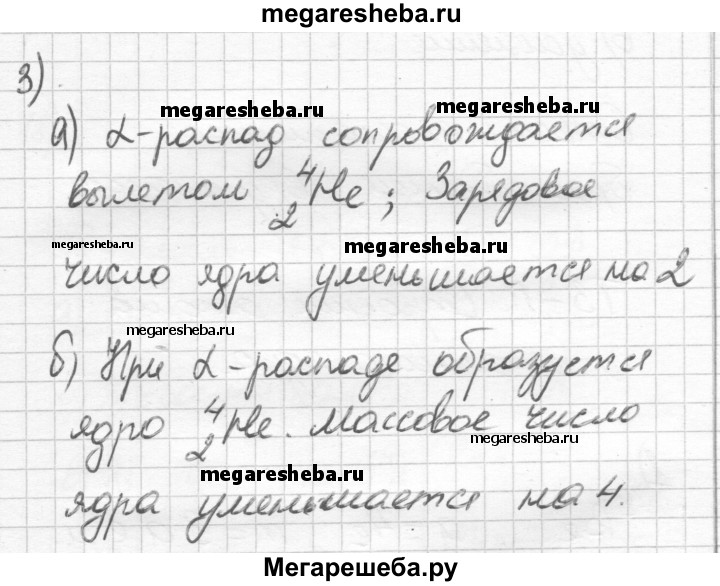 megaresheba.ru
3)
megaresheba.ru megaresheba.ru
а) α-распад сопровождается
вылетом ⁴₂He; Зарядовое
megaresheba.ru megaresheba.ru
число ядра уменьшается на 2
megaresheba.ru
б) При α-распаде образуется
ядро ⁴₂He. Массовое число
megaresheba.ru
megaresheba.ru
ядра уменьшается на 4.
Мегарешеба.ру